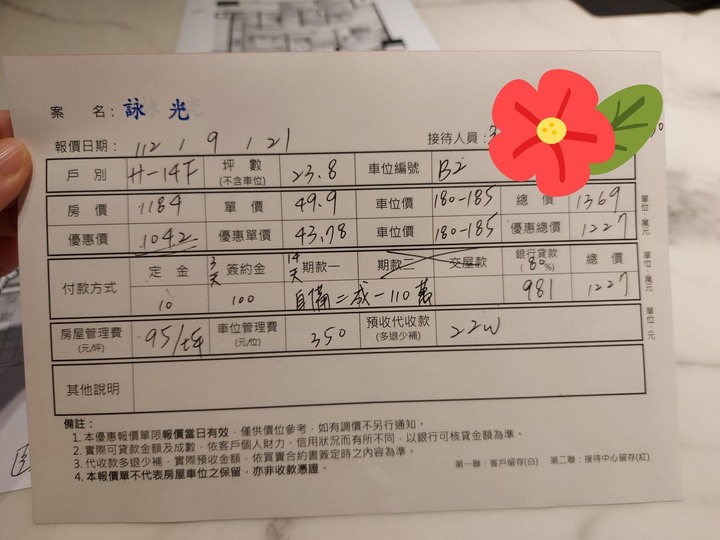 案 名：詠 光
報價日期： 112 / 9 / 21 接待人員：
戶 別 H-14F 坪 數 (不含車位) 23.8 車位編號 B2
房 價 1184 單 價 49.9 車位價 180-185 總 價 1369 單位：萬元
優惠價 1042 優惠單價 43.78 車位價 180-185 優惠總價 1227
付款方式 定 金 3天 簽約金 14天 期款一 期款二 交屋款 銀行貸款 ( 80 %) 總 價 單位：萬元
10 100 自備二成-110萬 981 1227
房屋管理費 (元/坪) 95/坪 車位管理費 (元/位) 350 預收代收款 (多退少補) 22W 單位：元
其他說明
備註：
1. 本優惠報價單限報價當日有效，僅供價位參考，如有調價不另行通知。
2. 實際可貸款金額及成數，依客戶個人財力、信用狀況而有所不同，以銀行可核貸金額為準。
3. 代收款多退少補，實際預收金額，依買賣合約書簽定時之內容為準。
4. 本報價單不代表房屋車位之保留，亦非收款憑證。
第一聯：客戶留存(白) 第二聯：接待中心留存(紅)